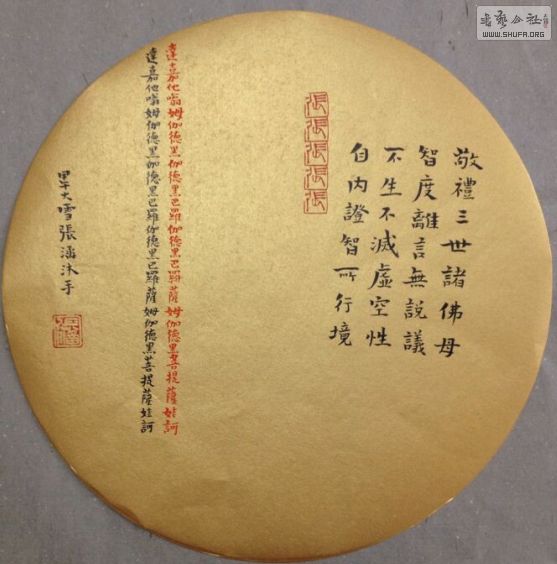 書藝公社
WWW.SHUFA.ORG
敬禮三世諸佛母
智度離言無說議
不生不滅虛空性
自內證智所行境
張張張張張
達嘉他嗡姆伽德黑伽德黑巴羅伽德黑巴羅薩姆伽德黑菩提薩娃訶
達嘉他嗡姆伽德黑伽德黑巴羅伽德黑巴羅薩姆伽德黑菩提薩娃訶
甲午大雪張涵沐手